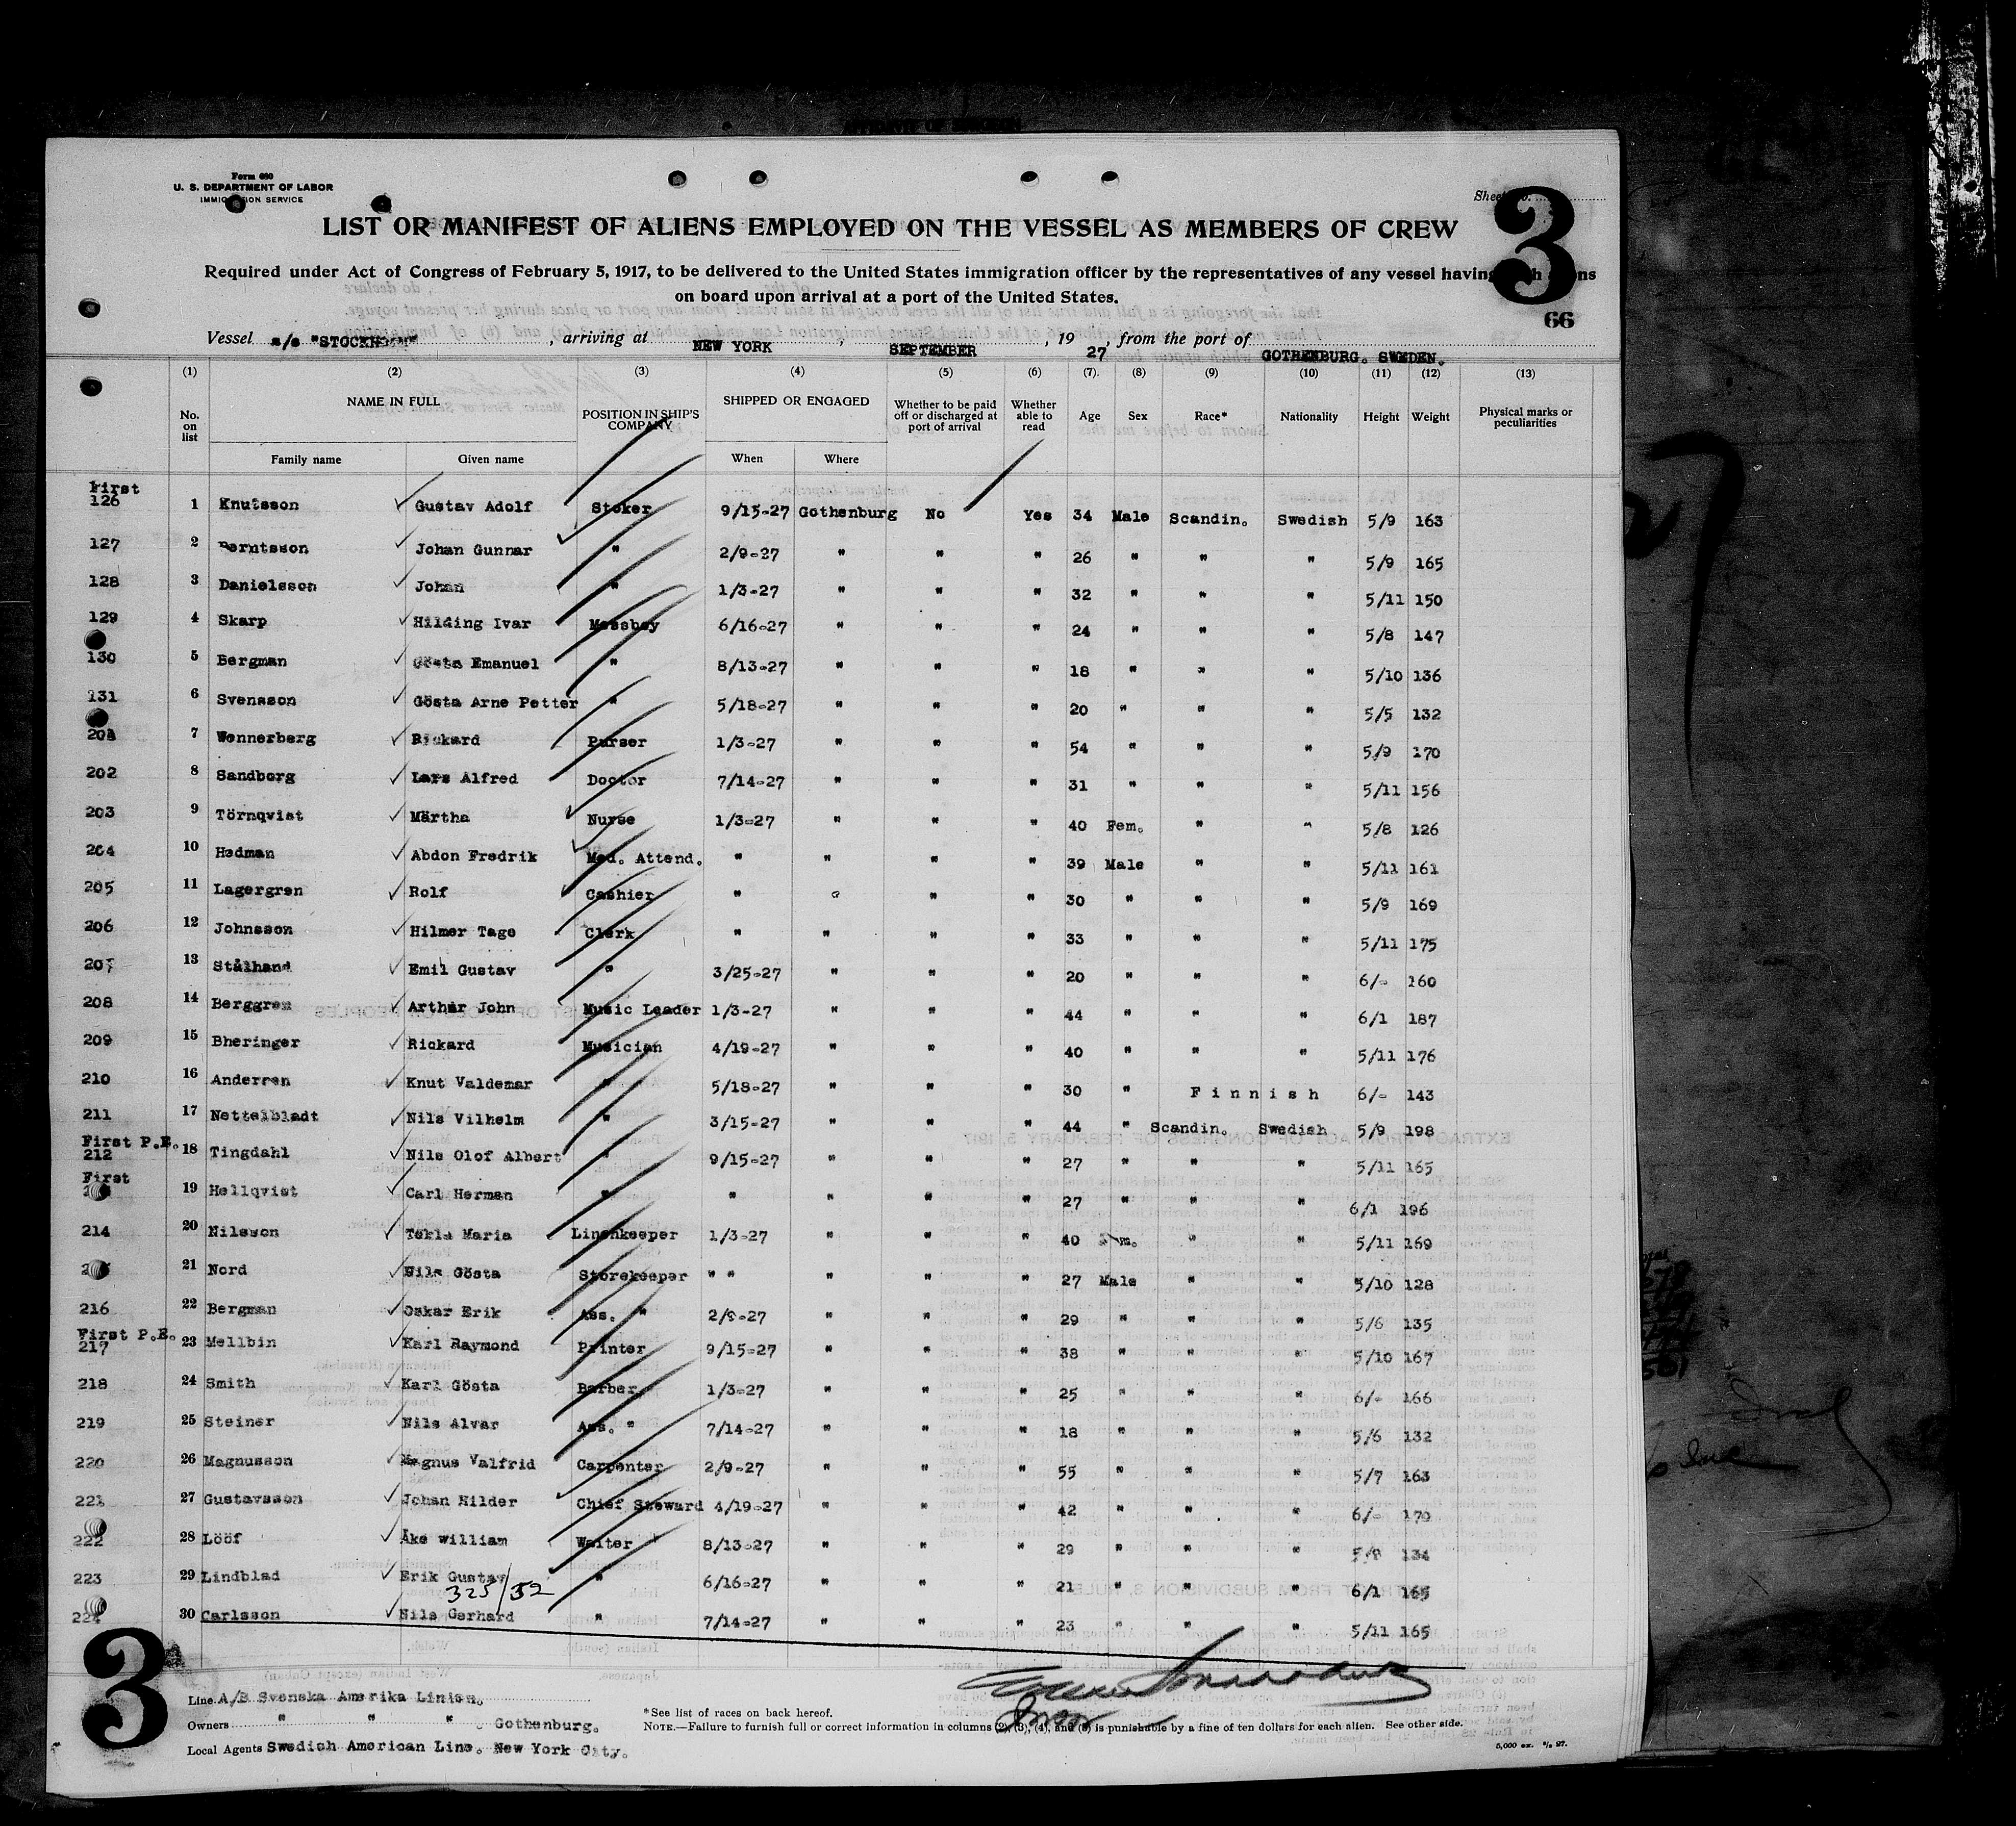 Form 680
U. S. DEPARTMENT OF LABOR
IMMIGRATION SERVICE
Sheet No.
3
66
LIST OR MANIFEST OF ALIENS EMPLOYED ON THE VESSEL AS MEMBERS OF CREW
Required under Act of Congress of February 5, 1917, to be delivered to the United States immigration officer by the representatives of any vessel having such aliens
on board upon arrival at a port of the United States.
Vessel s/s "STOCKHOLM", arriving at NEW YORK, SEPTEMBER, 1927, from the port of GOTHENBURG. SWEDEN.
(1) (2) (3) (4) (5) (6) (7) (8) (9) (10) (11) (12) (13)
No. on list NAME IN FULL POSITION IN SHIP'S COMPANY SHIPPED OR ENGAGED Whether to be paid off or discharged at port of arrival Whether able to read Age Sex Race* Nationality Height Weight Physical marks or peculiarities
Family name Given name When Where
First
126 1 Knutsson Gustav Adolf Stoker 9/15-27 Gothenburg No Yes 34 Male Scandin. Swedish 5/9 163
127 2 Berntsson Johan Gunnar " 2/9-27 " " " 26 " " " 5/9 165
128 3 Danielsson Johan " 1/3-27 " " " 32 " " " 5/11 150
129 4 Skarp Hilding Ivar Messboy 6/16-27 " " " 24 " " " 5/8 147
130 5 Bergman Gösta Emanuel " 8/13-27 " " " 18 " " " 5/10 136
131 6 Svensson Gösta Arne Petter " 5/18-27 " " " 20 " " " 5/5 132
201 7 Wennerberg Rickard Purser 1/3-27 " " " 54 " " " 5/9 170
202 8 Sandberg Lars Alfred Doctor 7/14-27 " " " 31 " " " 5/11 156
203 9 Törnqvist Märtha Nurse 1/3-27 " " " 40 Fem. " " 5/8 126
204 10 Hedman Abdon Fredrik Med. Attend. " " " " 39 Male " " 5/11 161
205 11 Lagergren Rolf Cashier " " " " 30 " " " 5/9 169
206 12 Johnsson Hilmer Tage Clerk " " " " 33 " " " 5/11 175
207 13 Stålhand Emil Gustav " 3/25-27 " " " 20 " " " 6/- 160
208 14 Berggren Arthur John Music Leader 1/3-27 " " " 44 " " " 6/1 187
209 15 Bheringer Rickard Musician 4/19-27 " " " 40 " " " 5/11 176
210 16 Anderren Knut Valdemar " 5/18-27 " " " 30 " Finnish 6/- 143
211 17 Nettelbladt Nils Vilhelm " 3/15-27 " " " 44 " Scandin. Swedish 5/9 198
First P.E.
212 18 Tingdahl Nils Olof Albert " 9/15-27 " " " 27 " " " 5/11 165
First
19 Hellqvist Carl Herman " " " " " 27 " " " 6/1 196
214 20 Nilsson Tekla Maria Linenkeeper 1/3-27 " " " 40 Fem. " " 5/11 169
21 Nord Nils Gösta Storekeeper " " " " " 27 Male " " 5/10 128
216 22 Bergman Oskar Erik Ass. " 2/9-27 " " " 29 " " " 5/6 135
First P.E.
217 23 Mellbin Karl Raymond Printer 9/15-27 " " " 38 " " " 5/10 167
218 24 Smith Karl Gösta Barber 1/3-27 " " " 25 " " " 6/- 166
219 25 Steiner Nils Alvar Ass. " 7/14-27 " " " 18 " " " 5/6 132
220 26 Magnusson Magnus Valfrid Carpenter 2/9-27 " " " 55 " " " 5/7 163
221 27 Gustavsson Johan Hilder Chief Steward 4/19-27 " " " 42 " " " 6/- 170
222 28 Lööf Åke william Waiter 8/13-27 " " " 29 " " " 134
223 29 Lindblad Erik Gustav " 6/16-27 " " " 21 " " " 6/1 165
325/52
224 30 Carlsson Nils Gerhard " 7/14-27 " " " 23 " " " 5/11 165
3
Line A/B Svenska Amerika Linien.
Owners " " " Gothenburg.
Local Agents Swedish American Line. New York City.
*See list of races on back hereof.
NOTE.—Failure to furnish full or correct information in columns (2), (3), (4), and (5) is punishable by a fine of ten dollars for each alien. See other side.